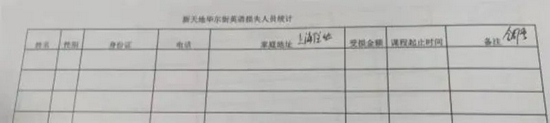 新天地华尔街英语损失人员统计
姓名 性别 身份证 电话 家庭地址 受损金额 课程起止时间 备注